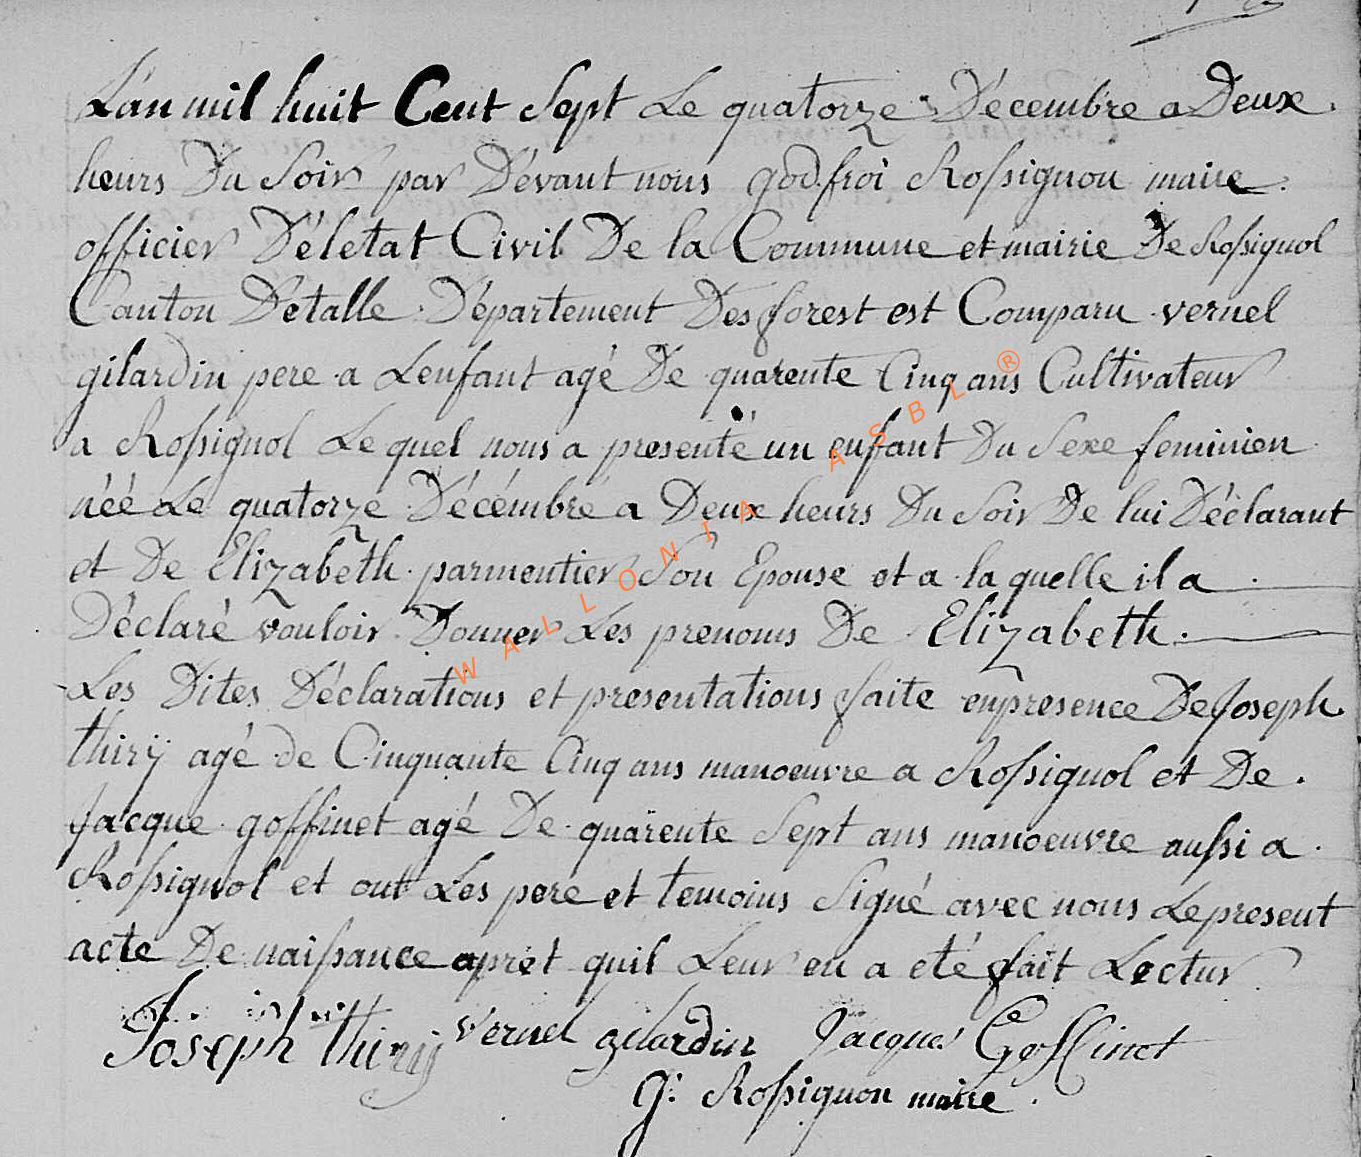 Lán mil huit Cent Sept Le quatorze Décembre a Deux
heurs Du Soir par Dévant nous godfroi Rossignon maire
officier Déletat Civil De la Commune et mairie De Rossignol
Canton Détalle Département Des forest est Comparu vernel
gilardin pere a Lenfant agé De quarente Cinq ans Cultivateur
a Rossignol Le quel nous a presenté un enfant Du Sexe feminien
néé Le quatorze Décémbre a Deux heurs Du Soir De lui Déclarant
et De Elizabeth parmentier Son Epouse et a la quelle il a
Déclaré vouloir Donner Les prenoms De Elizabeth
Les Dites Déclarations et presentations faite enpresence De Joseph
thirÿ agé de Cinquante Cinq ans manoeuvre a Rossignol et De
Jacque goffinet agé De quarente Sept ans manoeuvre aussi a
Rossignol et ont Les pere et temoins Signé avec nous Lepresent
acte De naissance apret quil Leur en a eté fait Lectur
Joseph thirÿ vernel gilardin Jacque Goffinet
G: Rossignon maire
WALLONIA ASBL ®